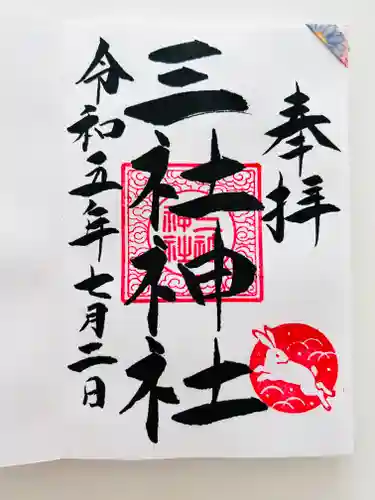 奉拝
三社神社
令和五年七月二日